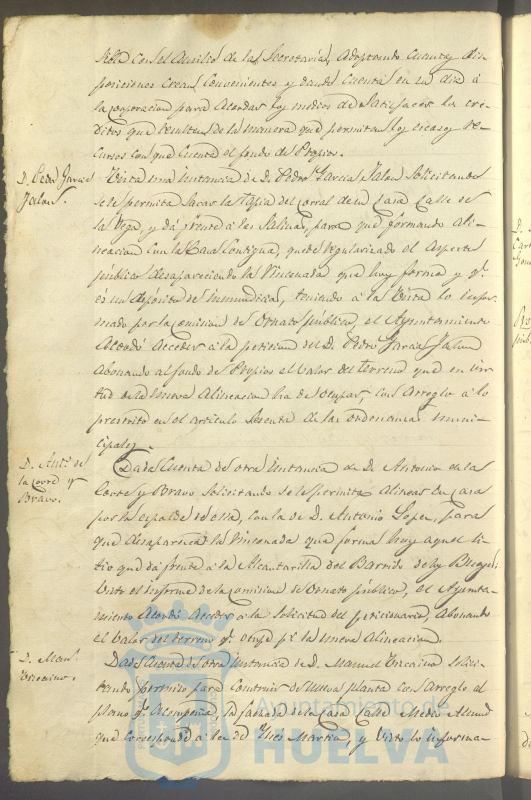 con el Auxilio de las Secretarias, Adoptando Cuantas dis-
posiciones crean Convenientes y dando Cuenta en su dia á
la corporacion para Acordar los medios de Satisfacer los cre-
ditos que resulten de la manera que permitan los escasos re-
cursos con que Cuenta el fondo de Propios.
D. Pedro Garcia
Jalon.
Vista una instancia de D. Pedro Garcia Jalon Solicitando
se le permita Sacar la tapia del corral de su Casa Calle de
la Vega, y dá frente á las Salinas, para que formando Ali-
neacion con la Casa Contigua, quede regularizado el Aspecto
público desapareciendo la Rinconada que hoy forma y qe.
es un depósito de inmundicias, teniendo á la Vista lo infor-
mado por la comision de Ornato público, el Ayuntamiento
Acordó Acceder á la peticion del D. Pedro Garcia Jalon
Abonando al fondo de Propios el Valor del terreno que en vir-
tud de la nueva Alineacion ha de ocupar, con Arreglo á lo
prescrito en el articulo sesenta de las ordenanzas muni-
cipales.
D. Antº. de
la Corte y
Bravo.
Dada Cuenta de otra instancia de D. Antonio de la
Corte y Bravo solicitando se le permita Alinear su casa
por la espalda de esta, con la de D. Antonio Lopez, para
que desaparezca la Rinconada que forma hoy aquel si-
tio que dá frente á la Alcantarilla del Barrido de
Visto el informe de la comision de Ornato público, el Ayunta-
miento Acordó Acceder á la Solicitud del peticionario, Abonando
el Valor del terreno qe. ocupe pr. la nueva Alineacion.
D. Manl.
Vizcaino.
Dada Cuenta de otra instancia de D. Manuel Vizcaino solici-
tando permiso para construir de nueva planta con Arreglo al
plano qe. Acompaña, la fachada de la Casa Calle Medio Almud
que corresponde á la de Ynés Martin, y Visto lo informa-
Ayuntamiento de
HUELVA